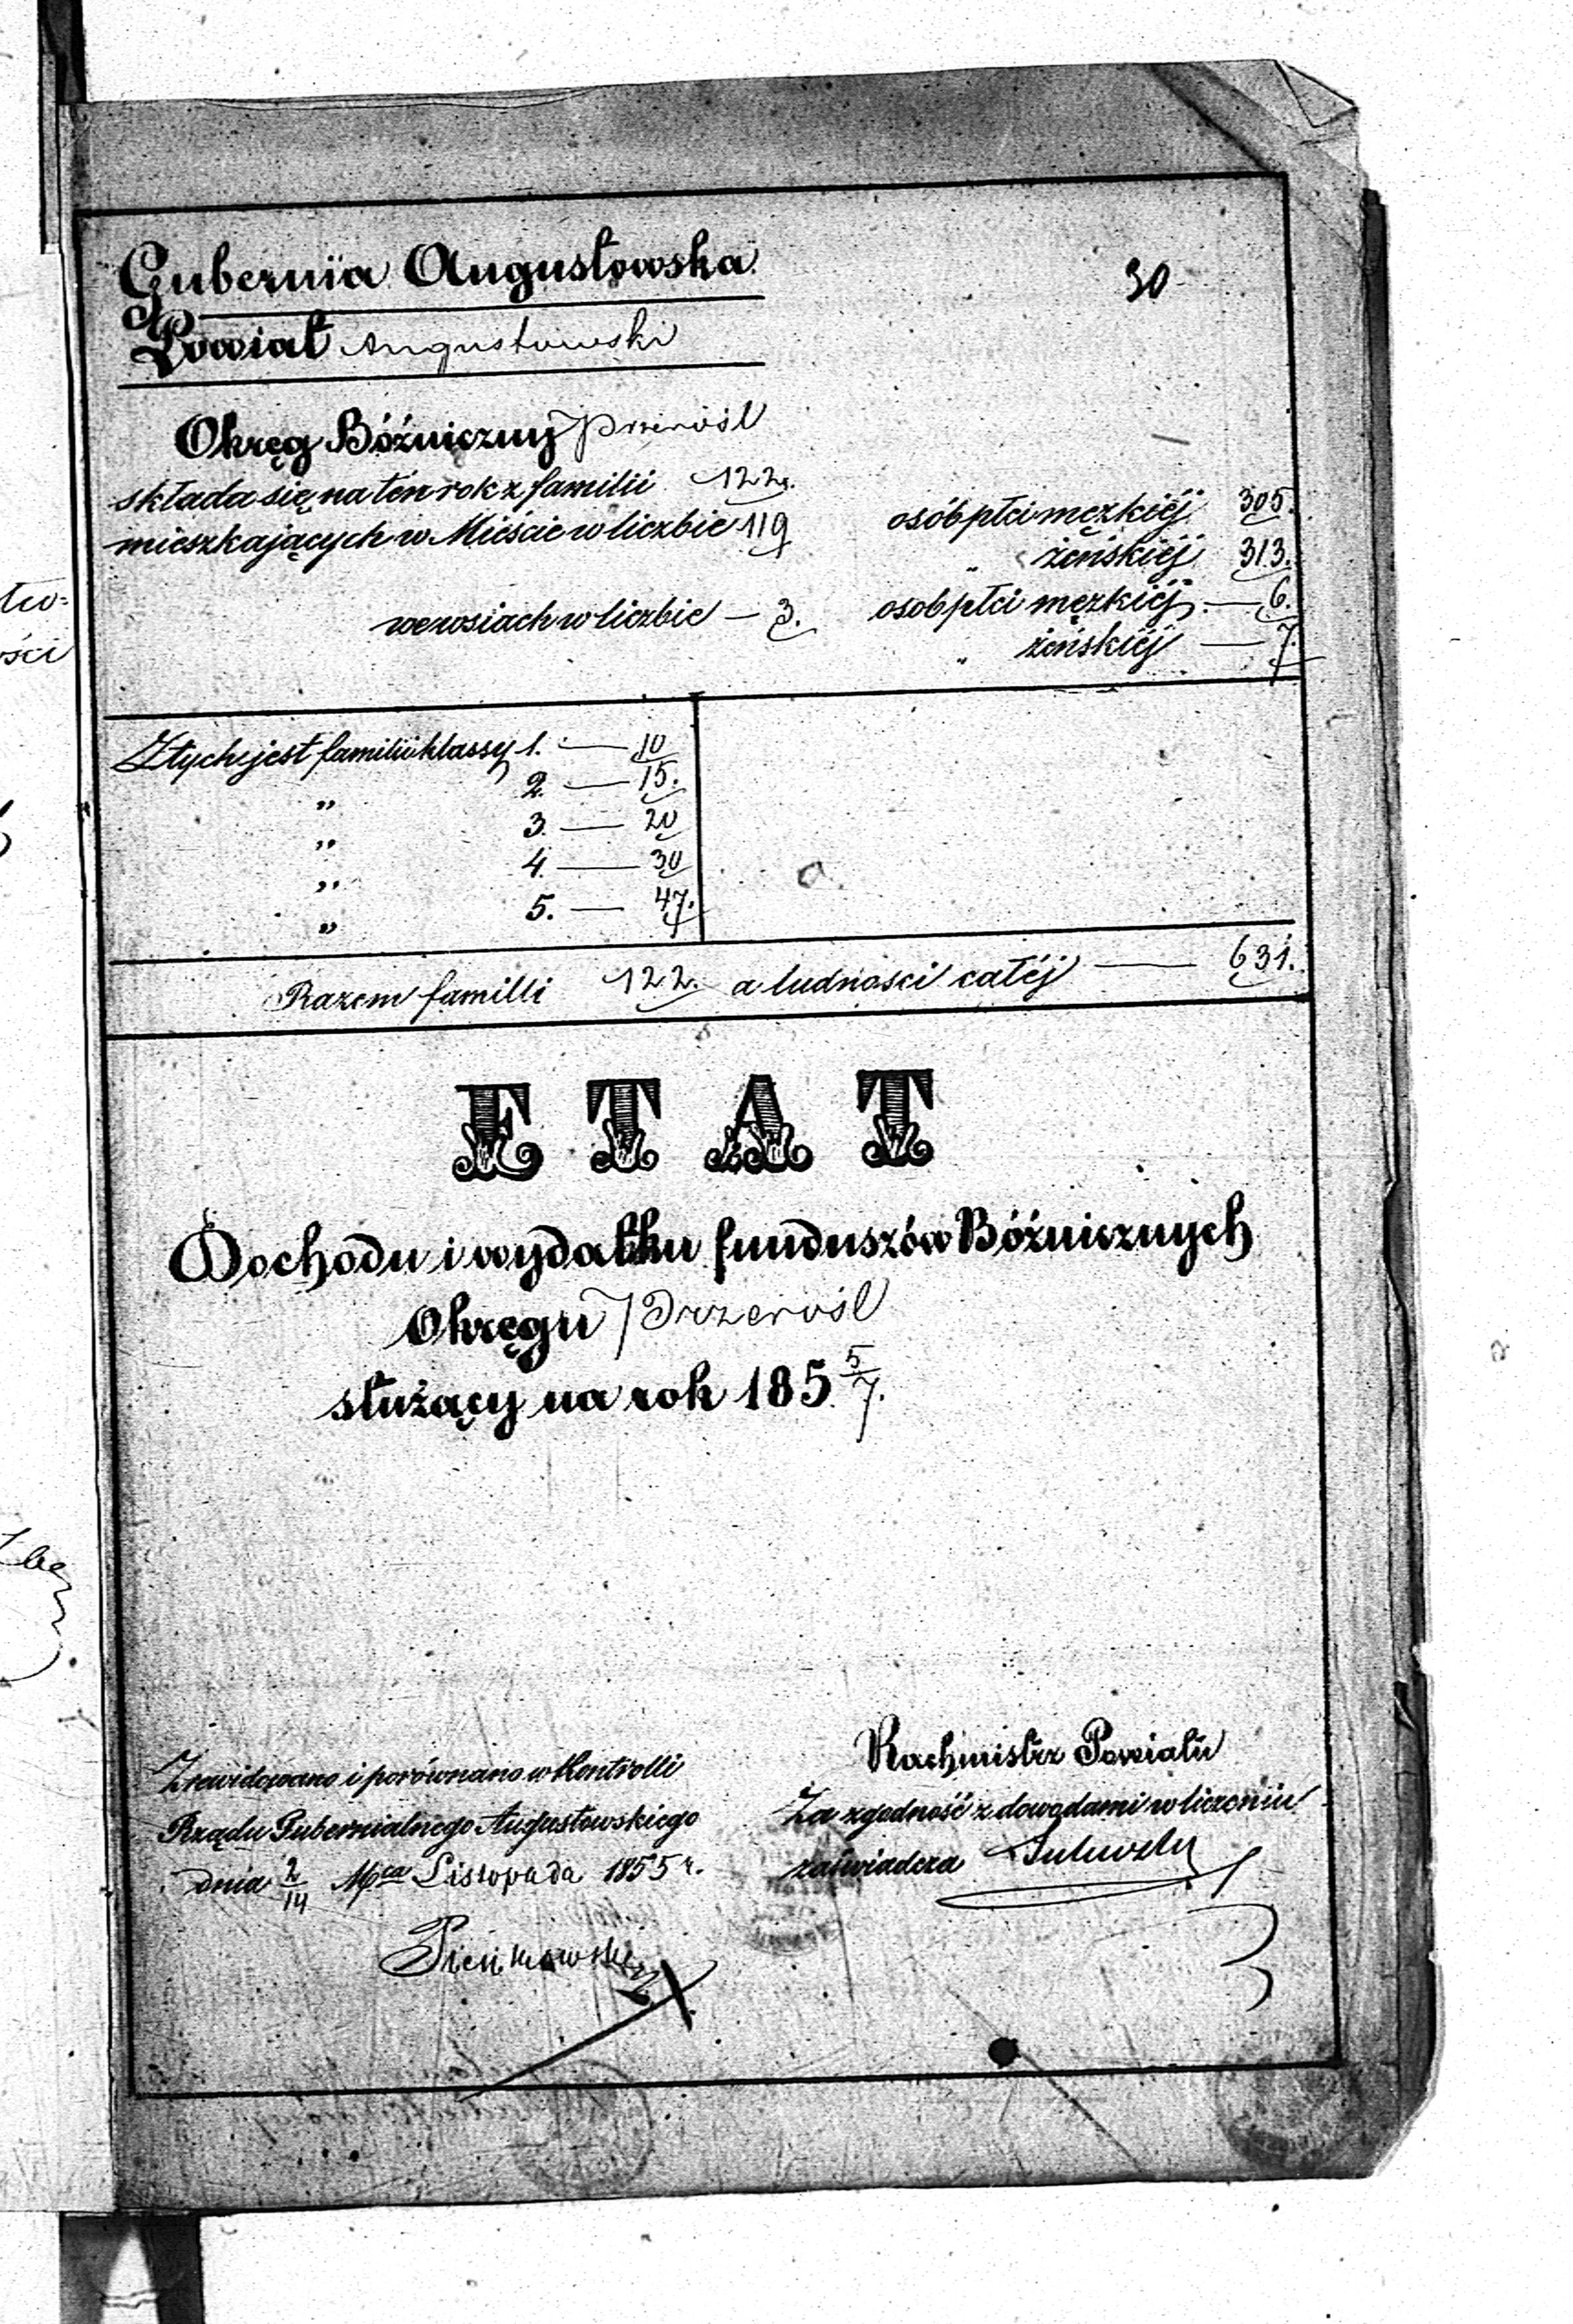 Gubernia Augustowska
30
Powiat Augustowski
Okręg Bóźniczny Przerośl
składa się na ten rok z familii 122.
mieszkających w Mieście w liczbie 119 osób płci męzkiéj 305.
„ żeńskiéj 313.
we wsiach w liczbie — 3. osób płci męzkiéj — 6.
„ żeńskiéj — 7.
Z tych jest familii klassy 1. — 10
„ 2. — 15.
„ 3. — 20
„ 4. — 30
„ 5. — 47.
Razem familli 122. a ludności całéj — 631.
ETAT
Dochodu i wydatku funduszów Bóźnicznych
Okręgu Przerośl
służący na rok 185 5/7.
Zrewidowano i porównano w Kontrolli
Rządu Gubernialnego Augustowskiego
dnia 2/14 Mca Listopada 1855 r.
Pieńkowski
Rachmistrz Powiatu
Za zgodność z dowodami w liczeniu
zaświadcza